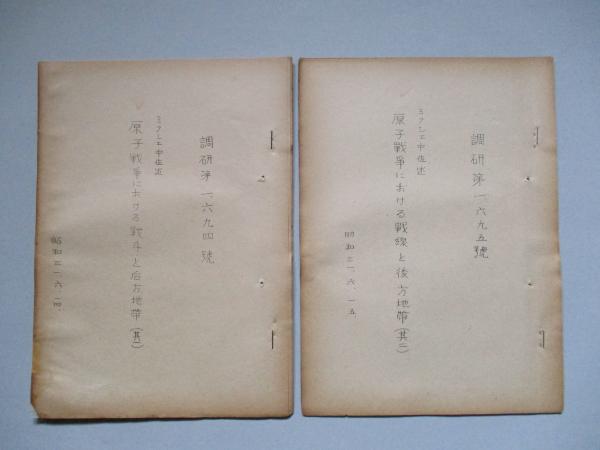 調研第一六九五號
ミクシェ中佐述
原子戰爭における戰線と後方地帶(其二)
昭和二一、六、一五、
調研第一六九四號
ミクシェ中佐述
原子戰爭における戦斗と后方地帯(其一)
昭和二一、六、一四、